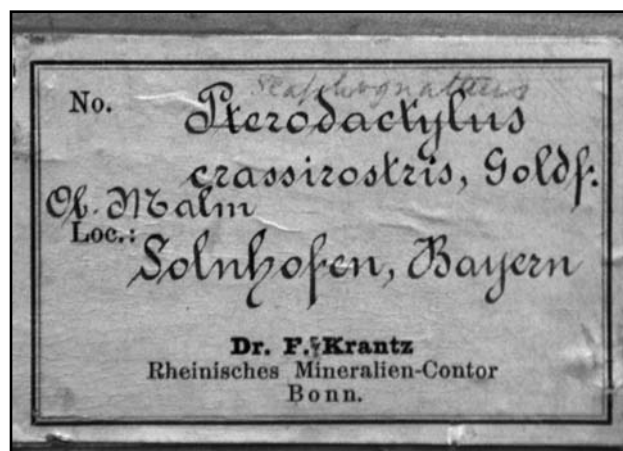 Scaphognathus
No. Pterodactylus
crassirostris, Goldf.
Ob. Malm
Loc.: Solnhofen, Bayern
Dr. F. Krantz
Rheinisches Mineralien-Contor
Bonn.